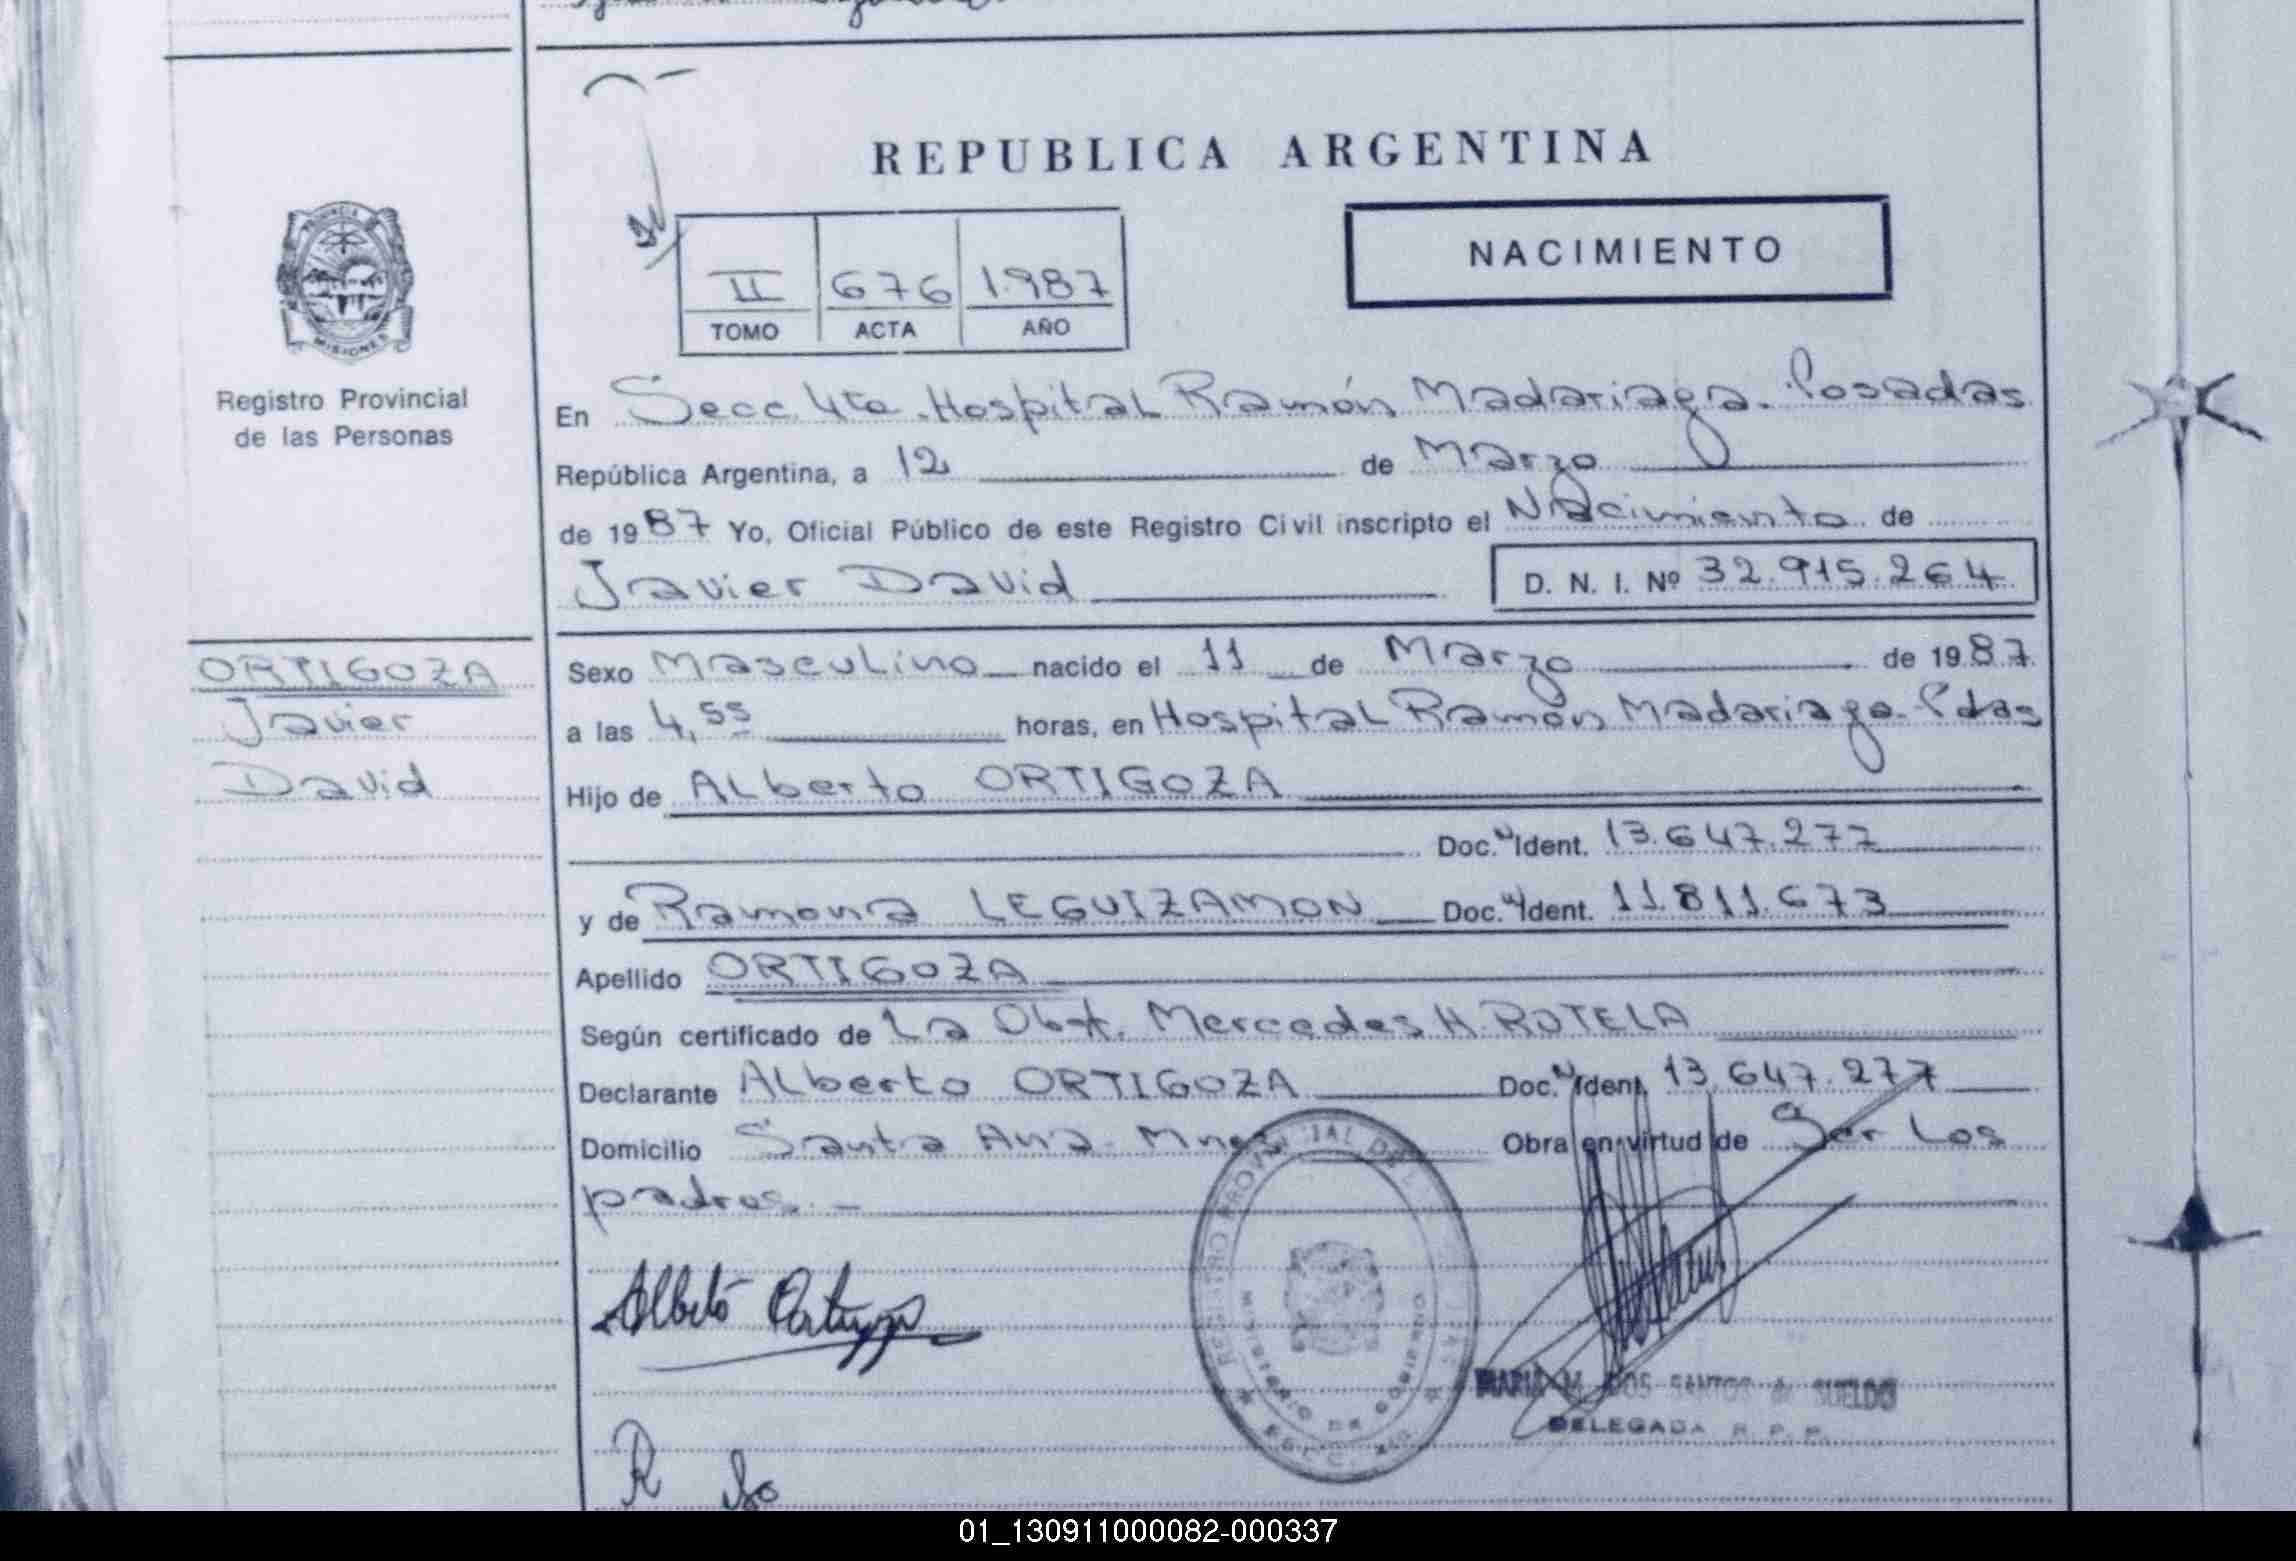 REPUBLICA ARGENTINA
NACIMIENTO
II 676 1.987
TOMO ACTA AÑO
PROVINCIA
MISIONES
Registro Provincial
de las Personas
En Secc. 4ta. Hospital Ramón Madariaga. Posadas
República Argentina, a 12 de Marzo
de 1987 Yo, Oficial Público de este Registro Civil inscripto el Nacimiento de
Javier David D. N. I. Nº 32.915.264
ORTIGOZA
Javier
David
Sexo Masculino nacido el 11 de Marzo de 1987
a las 4,55 horas, en Hospital Ramón Madariaga. Pdas
Hijo de Alberto ORTIGOZA
Doc. Ident. 13.647.277
y de Ramona LEGUIZAMON Doc. Ident. 11.811.673
Apellido ORTIGOZA
Según certificado de La Obst. Mercedes H. ROTELA
Declarante Alberto ORTIGOZA Doc. Ident. 13.647.277
Domicilio Santa Ana Mnes Obra en virtud de Ser Los
padres. -
REGISTRO PROVINCIAL DE
MINISTERIO DE GOBIERNO
Alberto Ortigoza
MARIA M. DOS SANTOS de SUELDO
DELEGADA R. P. P.
01_130911000082-000337